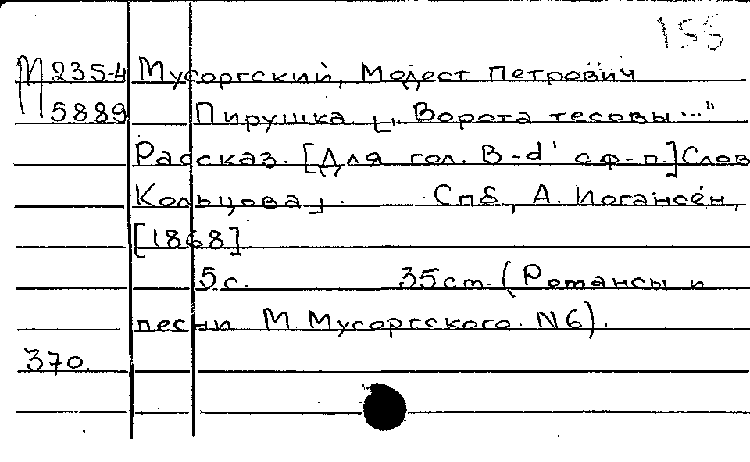 155
М 235-4 Мусоргский, Модест Петрович
5889 Пирушка „Ворота тесовы..."
Рассказ. [Для гол. B-d' с ф-п.] Слов
Кольцова. Спб, А. Иогансен,
[1868]
5 с. 35 ст. (Романсы и
песни М Мусоргского. N 6).
370.